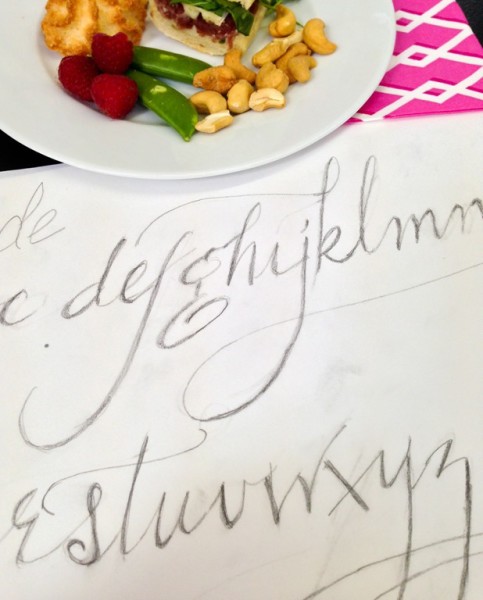 de
c defghijklmn
rstuvwxyz